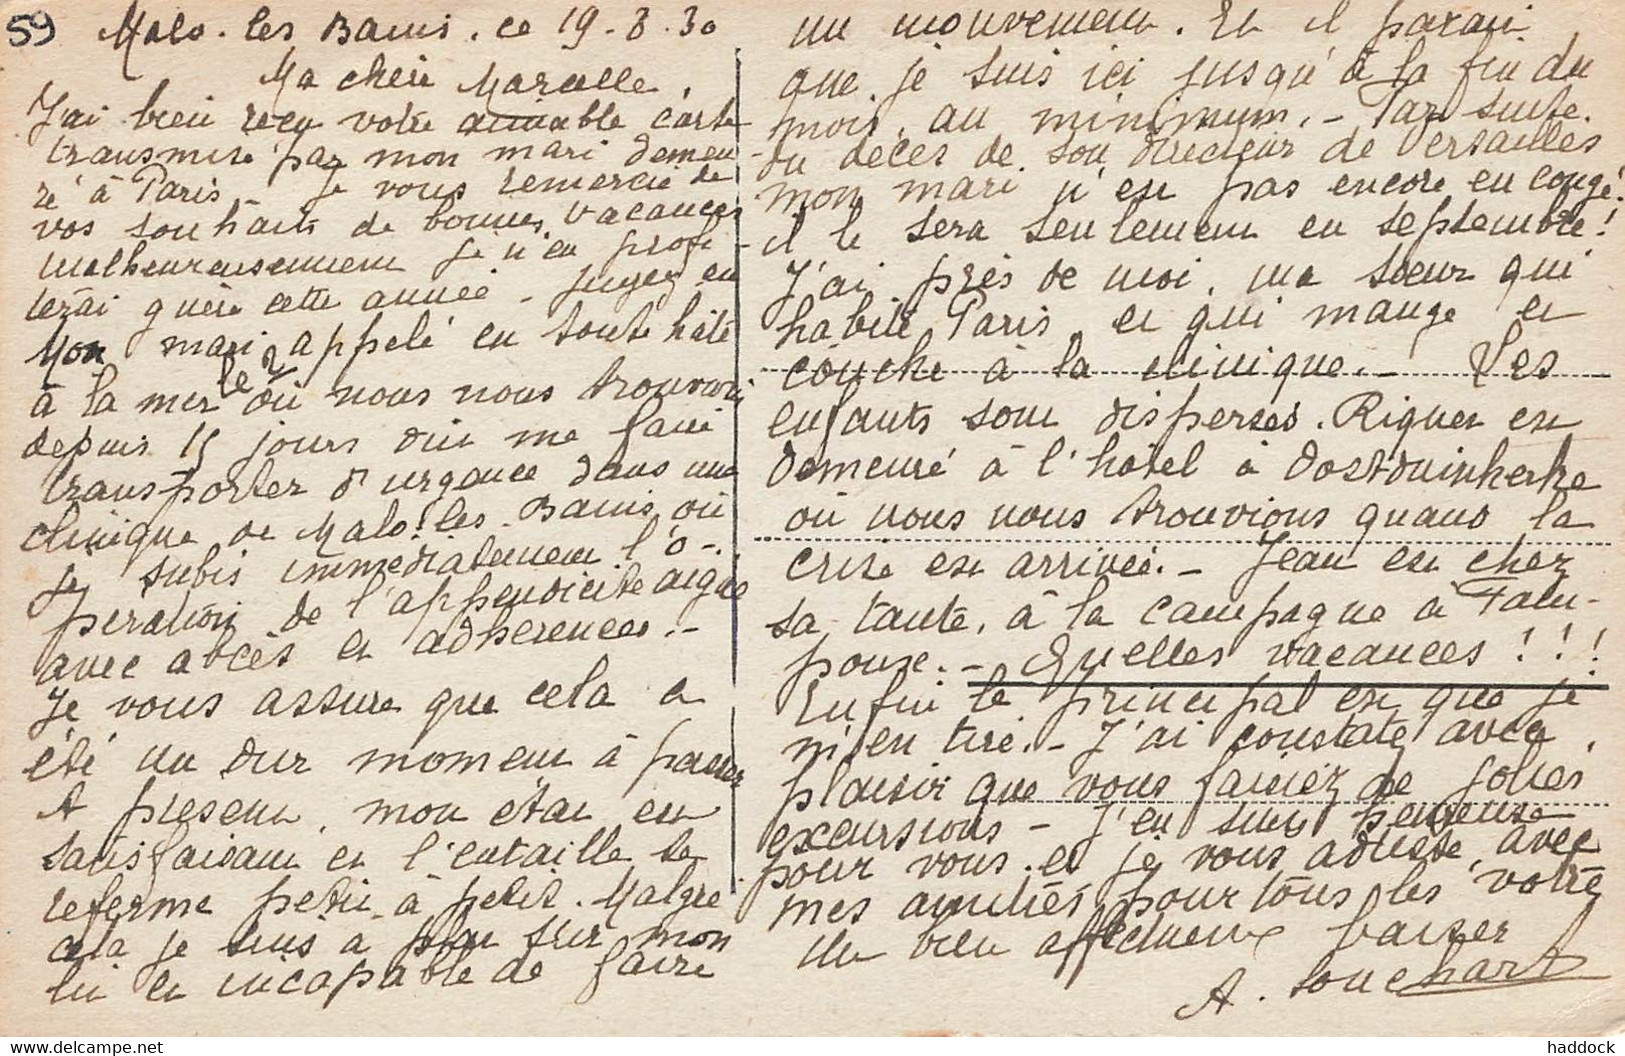 59 Malo-les Bains, ce 19-8-30
Ma chère Marcelle,
J'ai bien reçu votre aimable carte
transmise par mon mari demeu
ré à Paris. Je vous remercie de
vos souhaits de bonnes vacances
malheureusement je n'en profi-
terai guère cette année - Jugez en
Mon mari appelé en toute hâte
à la mer le 2 où nous nous trouvions
depuis 15 jours dut me faire
transporter d'urgence dans une
clinique de Malo-les-Bains où
je subis immédiatement l'o-
pération de l'appendicite aigue
avec abcès et adhérences.-
Je vous assure que cela a
été un dur moment à passer
A présent, mon état est
satisfaisant et l'entaille se
referme petit à petit. Malgré
cela je suis à plat sur mon
lit et incapable de faire
un mouvement. Et il parait
que je suis ici jusqu'à la fin du
mois, au minimum.- Par suite
du décès de son directeur de Versailles
mon mari n'est pas encore en congé!
il le sera seulement en septembre!
J'ai près de moi, ma soeur qui
habite Paris et qui mange et
couche à la clinique.- Les
enfants sont dispersés. Riquet est
demeuré à l'hôtel à Oostduinkerke
où nous nous trouvions quand la
crise est arrivée.- Jean est chez
sa tante, à la campagne à
- Quelles vacances!!!
Enfin le principal est que je
m'en tire.- J'ai constaté avec
plaisir que vous faisiez de jolies
excursions - J'en suis heureuse
pour vous et je vous adresse, avec
mes amitiés pour tous les votres
un bien affectueux baiser
A. Souchart
delcampe.net
haddock